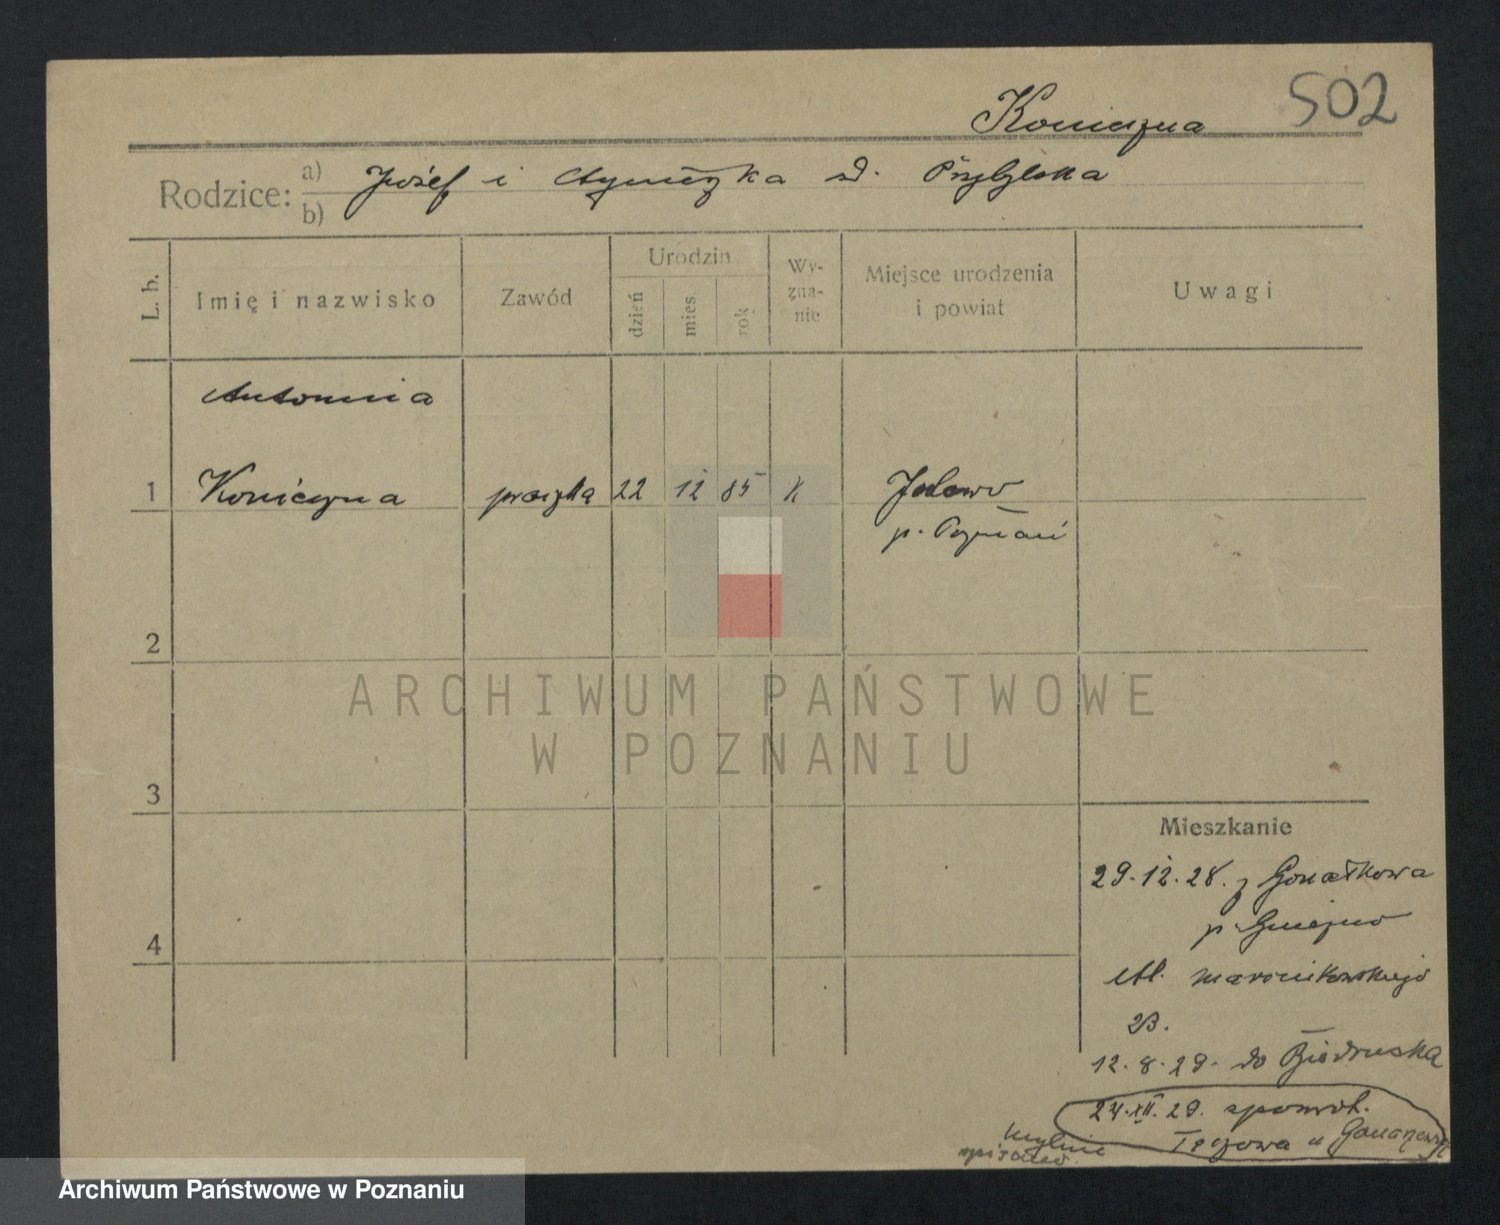 502
Konieczna
Rodzice: a) Józef i Agnieszka zd. Przybylska
b)
L. b.
Imię i nazwisko
Zawód
Urodzin
dzień
mies.
rok
Wy-
zna-
nie
Miejsce urodzenia
i powiat
Uwagi
Antonina
1 Konieczna praczka 22 12 85 k
p. Poznań
2
3
4
ARCHIWUM PAŃSTWOWE
W POZNANIU
Mieszkanie
29.12.28. z
p. Gniezno
Al. Marcinkowskiego
23.
12.8.29. do Biedruska
24.XII.29. spowrot.
Tęczowa u
mylnie
wpisano.
Archiwum Państwowe w Poznaniu